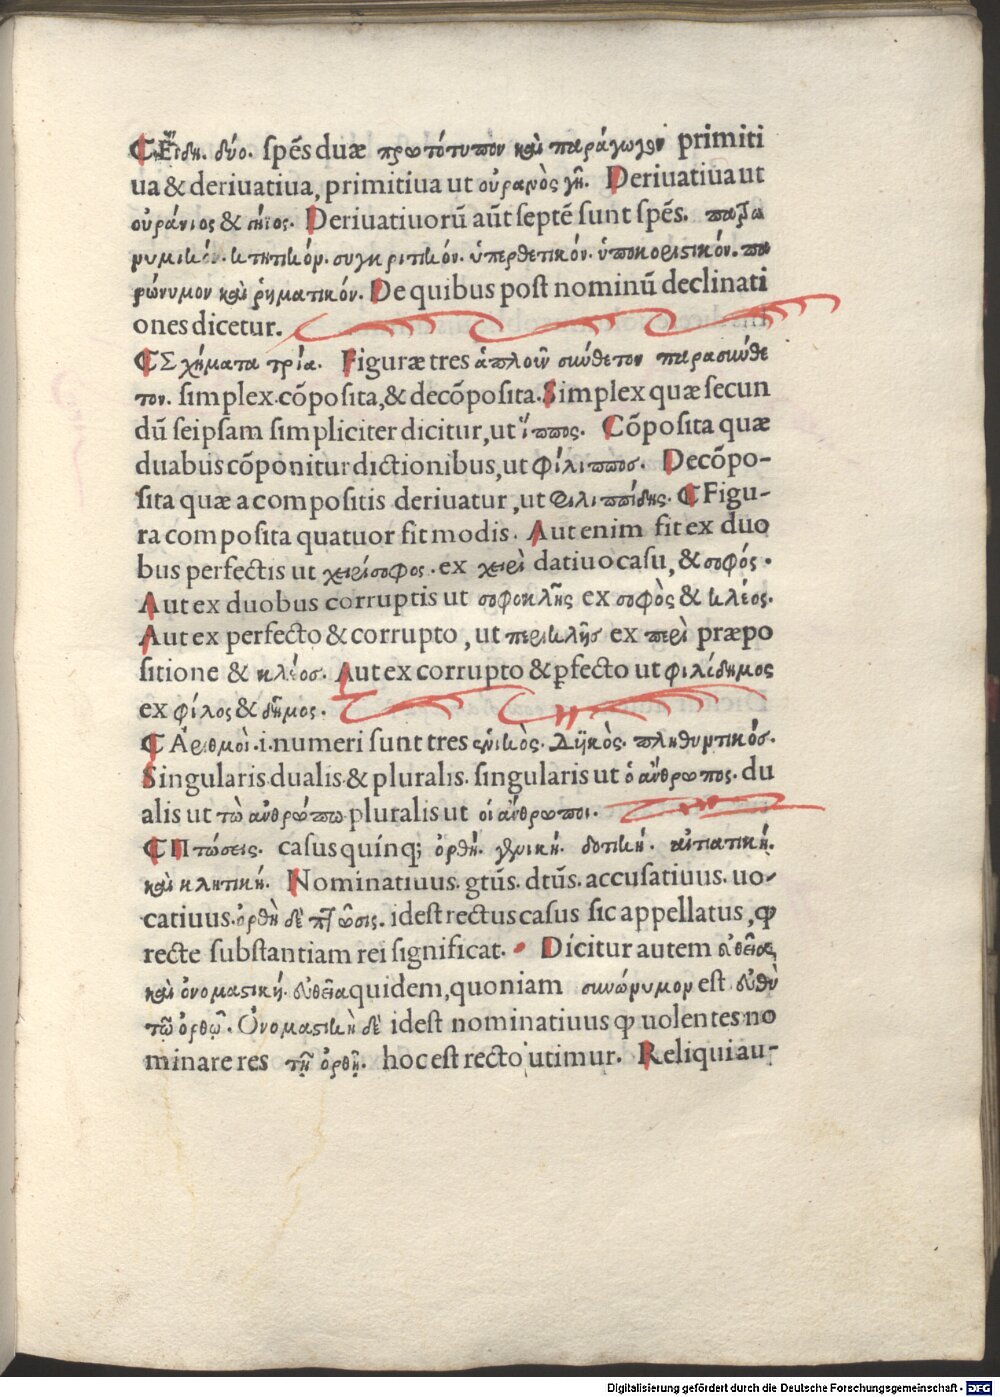 ¶Εἴδη. δύο. sp̄es duæ πρωτότυπον καὶ παράγωγον primiti
ua & deriuatiua, primitiua ut οὐρανὸς γῆ. Deriuatiua ut
οὐράνιος & γήϊος. Deriuatiuorū aūt septē sunt sp̄es. πατρω
νυμικόν. κτητικόν. συγκριτικόν. ὑπερθετικόν. ὑποκοριστικόν. πα
ρώνυμον καὶ ῥηματικόν. De quibus post nominū declinati
ones dicetur.
¶Σχήματα τρία. Figuræ tres ἁπλοῦν σύνθετον παρασύνθε
τον. simplex.cōposita,& decōposita.Simplex quæ secun
dū seipsam simpliciter dicitur,ut ἵππος. Cōposita quæ
duabus cōponitur dictionibus,ut φίλιππος. Decōpo-
sita quæ a compositis deriuatur ,ut φιλιππίδης. ¶Figu-
ra composita quatuor fit modis. Aut enim fit ex duo
bus perfectis ut χειρίσοφος. ex χειρὶ datiuo casu, & σοφός.
Aut ex duobus corruptis ut σοφοκλῆς ex σοφὸς & κλέος.
Aut ex perfecto & corrupto , ut περικλῆς ex περὶ præpo
sitione & κλέος. Aut ex corrupto & ꝑfecto ut φιλόδημος
ex φίλος & δῆμος.
¶Ἀριθμοὶ.i.numeri sunt tres ἑνικὸς. Δυϊκὸς. πληθυντικός.
Singularis dualis & pluralis. singularis ut ὁ ἄνθρωπος. du
alis ut τὼ ἀνθρώπω pluralis ut οἱ ἄνθρωποι.
¶Πτώσεις. casus quinq; ὀρθή. γενική. δοτική. αἰτιατική.
καὶ κλητική. Nominatiuus. gtūs. dtūs. accusatiuus. uo-
catiuus.ὀρθὴ δὲ πτῶσις. idest rectus casus sic appellatus ,ꝙ
recte substantiam rei significat. Dicitur autem εὐθεῖα,
καὶ ὀνομαστική. εὐθεῖα quidem,quoniam συνώνυμον est εὐθὺ
τῷ ὀρθῷ. Ὀνομαστικὴ δὲ idest nominatiuus ꝙ uolentes no
minare res τῇ ὀρθῇ. hoc est recto utimur. Reliqui au-
Digitalisierung gefördert durch die Deutsche Forschungsgemeinschaft - DFG